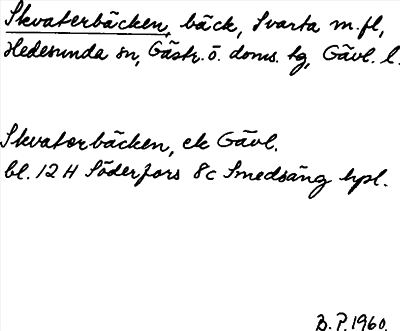 Skvaterbäcken, bäck, Svarta m.fl,
Hedesunda sn, Gästr. ö. doms. tg, Gävl. l.
Skvaterbäcken, ek Gävl.
bl. 12 H Söderfors 8c Smedsäng hpl.
B. P. 1960.